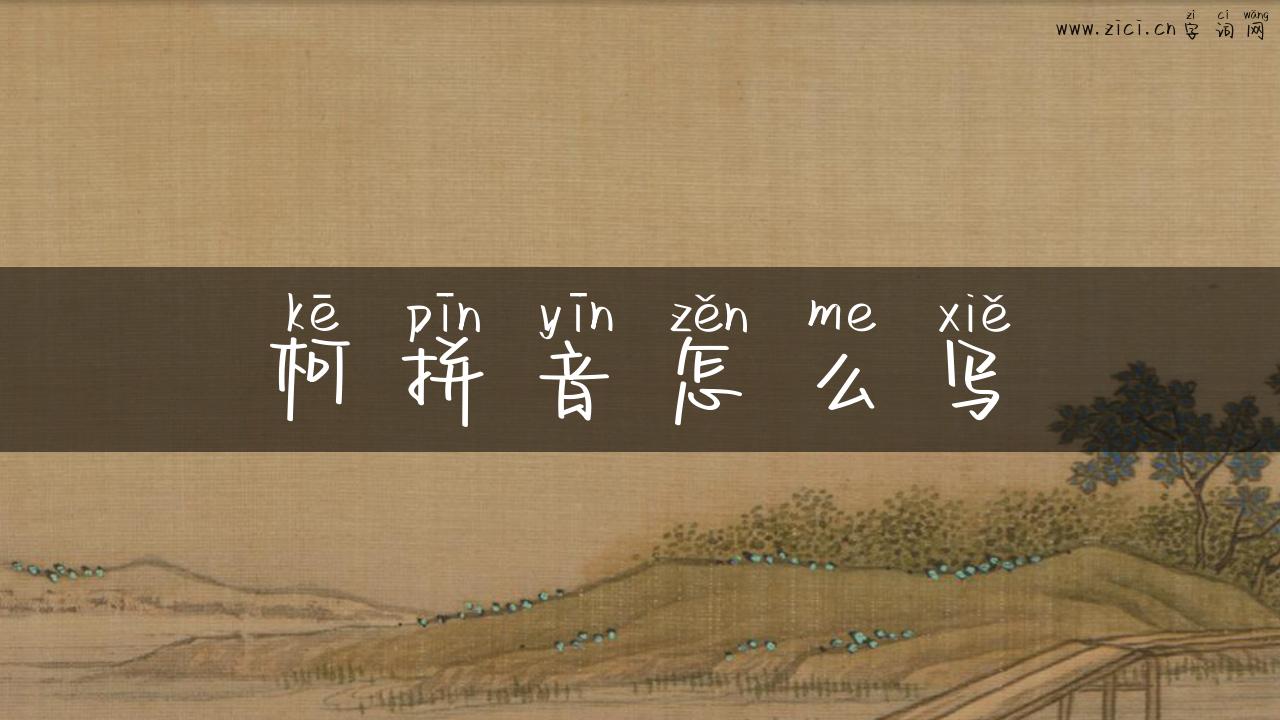 zì cí wǎng
www.zici.cn字词网
kē pīn yīn zěn me xiě
柯拼音怎么写